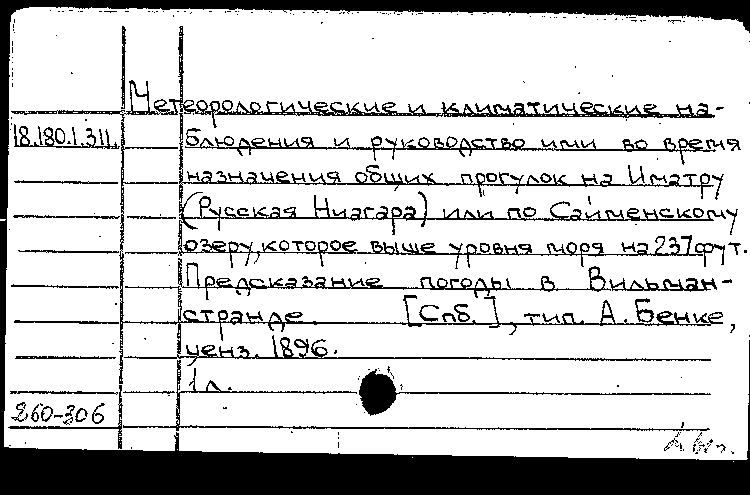 Метеорологические и климатические на-
18.180.1.311. блюдения и руководство ими во время
назначения общих прогулок на Иматру
(Русская Ниагара) или по Сайменскому
озеру, которое выше уровня моря на 237 фут.
Предсказание погоды в Вильман-
странде. [Спб.], тип. А. Бенке,
ценз. 1896.
1 л.
260-306